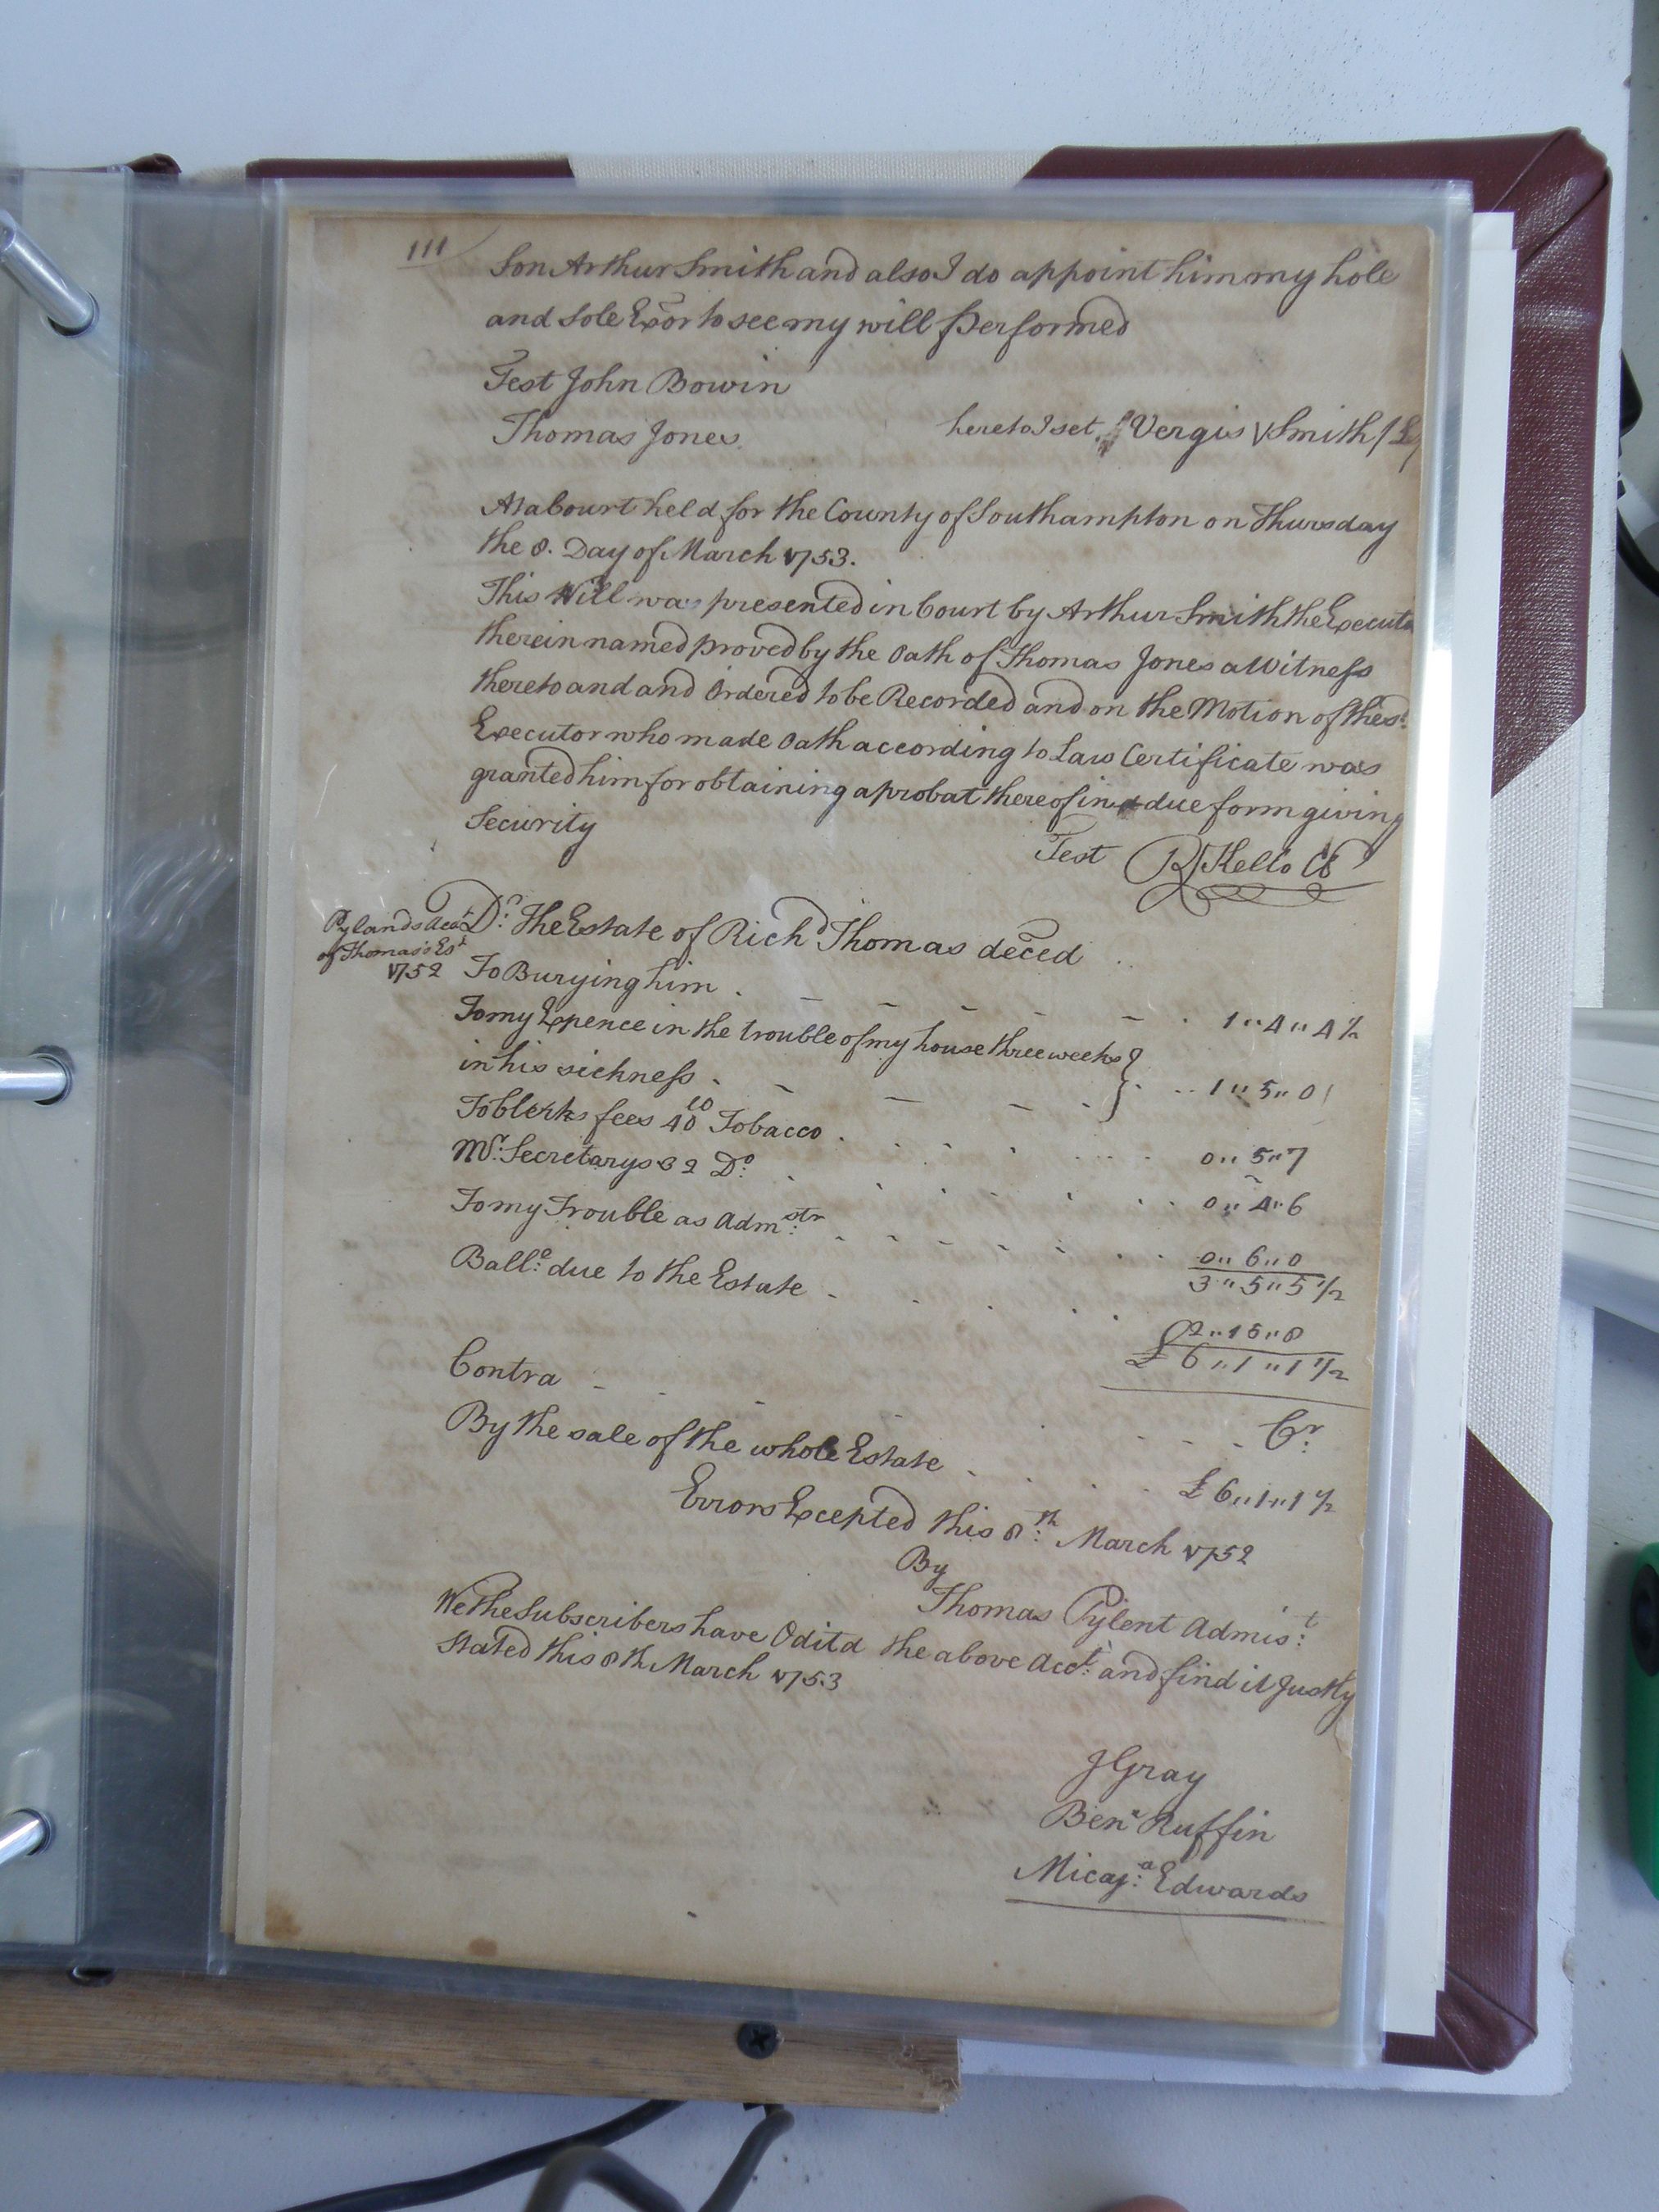 111
Son Arthur Smith and also I do appoint him my hole
and Sole Exor to see my will Performed
Test John Bowin
Thomas Jones hereto I set Vergis V Smith
At a Court held for the County of Southampton on Thursday
the 8. Day of March 1753.
This Will was presented in Court by Arthur Smith the Executo
therein named proved by the Oath of Thomas Jones a Witness
thereto and and Ordered to be Recorded and on the Motion of the sd.
Executor who made Oath according to Law Certificate was
granted him for obtaining a probat thereof in due form giving
Security
Test R Kello CC
Pylands Acct
of Thomas's Est
1752
Dr. The Estate of Richd Thomas deced
To Burying him 1"4"4½
To my Expence in the trouble of my house three weeks
in his sickness 1"5"0
To Clerks fees 40 Tobacco 0"5"7
Mr. Secretarys 32 Do. 0"4"6
To my Trouble as Admstr. 0"6"0
3"5"5½
Balle. due to the Estate 2"15"8
£6"1"1½
Contra Cr.
By the sale of the whole Estate £6"1"1½
Errors Excepted this 8th. March 1752
By
Thomas Pylent Admist.
We the Subscribers have Oditd the above Acct. and find it Justly
Stated this 8th March 1753
J Gray
Benj Ruffin
Micaja. Edwards